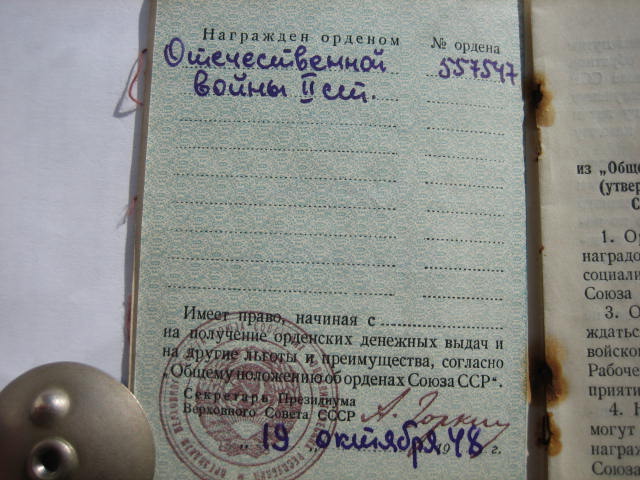 Награжден орденом № ордена
Отечественной 557547
войны II ст.
Имеет право, начиная с
на получение орденских денежных выдач и
на другие льготы и преимущества, согласно
„Общему положению об орденах Союза ССР“.
Секретарь Президиума
Верховного Совета СССР А. Горкин
„ 19 „ октября 1948 г.
из „Обще
(утвер
С
1. О
наградо
социали
Союза
3. О
ждаться
войской
Рабоче
приятия
4.
могут
награж
Союза